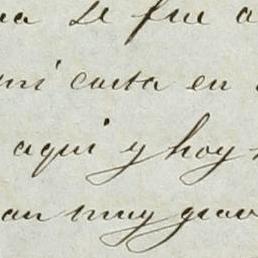 na se fue a
mi carta en
aqui y hoy
an muy grav